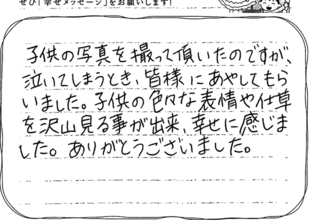 ぜひ「幸せメッセージ」をお願いします!
子供の写真を撮って頂いたのですが、
泣いてしまうとき、皆様にあやしてもら
いました。子供の色々な表情や仕草
を沢山見る事が出来、幸せに感じま
した。ありがとうございました。